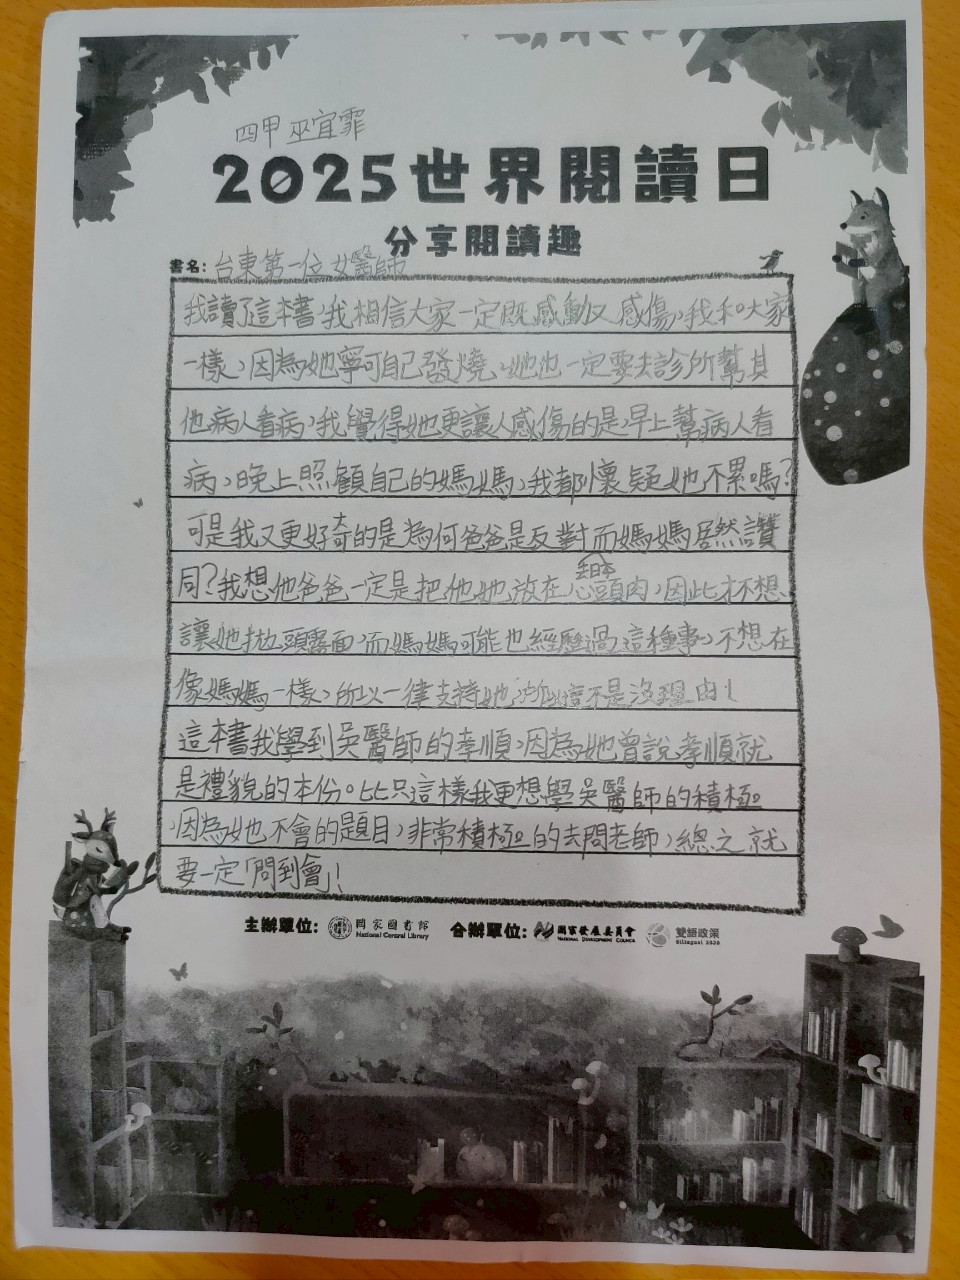 四甲 巫宜霏
2025世界閱讀日
分享閱讀趣
書名：台東第一位女醫師
我讀了這本書，我相信大家一定既感動又感傷，我和大家
一樣，因為她寧可自己發燒，她也一定要去診所幫其
他病人看病，我覺得她更讓人感傷的是，早上幫病人看
病，晚上照顧自己的媽媽，我都懷疑她不累嗎？
可是我又更好奇的是為何爸爸是反對而媽媽居然讚
同？我想他爸爸一定是把他她放在心頭肉，因此才不想
讓她拋頭露面，而媽媽可能也經歷過這種事，不想在
像媽媽一樣，所以一律支持她，所以這不是沒理由！
這本書我學到吳醫師的孝順，因為她曾說孝順就
是禮貌的本份。比只這樣我更想學吳醫師的積極
，因為她不會的題目，非常積極的去問老師，總之就
要一定「問到會」！
主辦單位： 國家圖書館 National Central Library 合辦單位： 國家發展委員會 NATIONAL DEVELOPMENT COUNCIL 雙語政策 Bilingual 2030